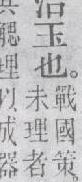 治玉也。
戰國策。
未理者
其䚡理以成器